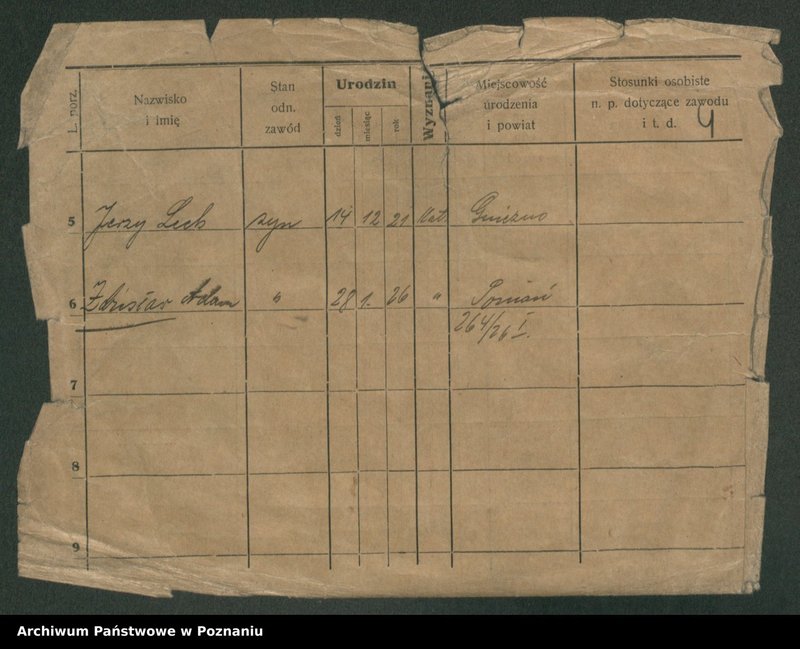 L. porz.
Nazwisko
i imię
Stan
odn.
zawód
Urodzin
dzień
miesiąc
rok
Wyznani
Miejscowość
urodzenia
i powiat
Stosunki osobiste
n. p. dotyczące zawodu
i t. d.
4
5 Jerzy Lech syn 14 12 21 kat. Gniezno
6 Zdzisław Adam " 28 1. 26 " Poznań
264/26 I.
7
8
9
Archiwum Państwowe w Poznaniu